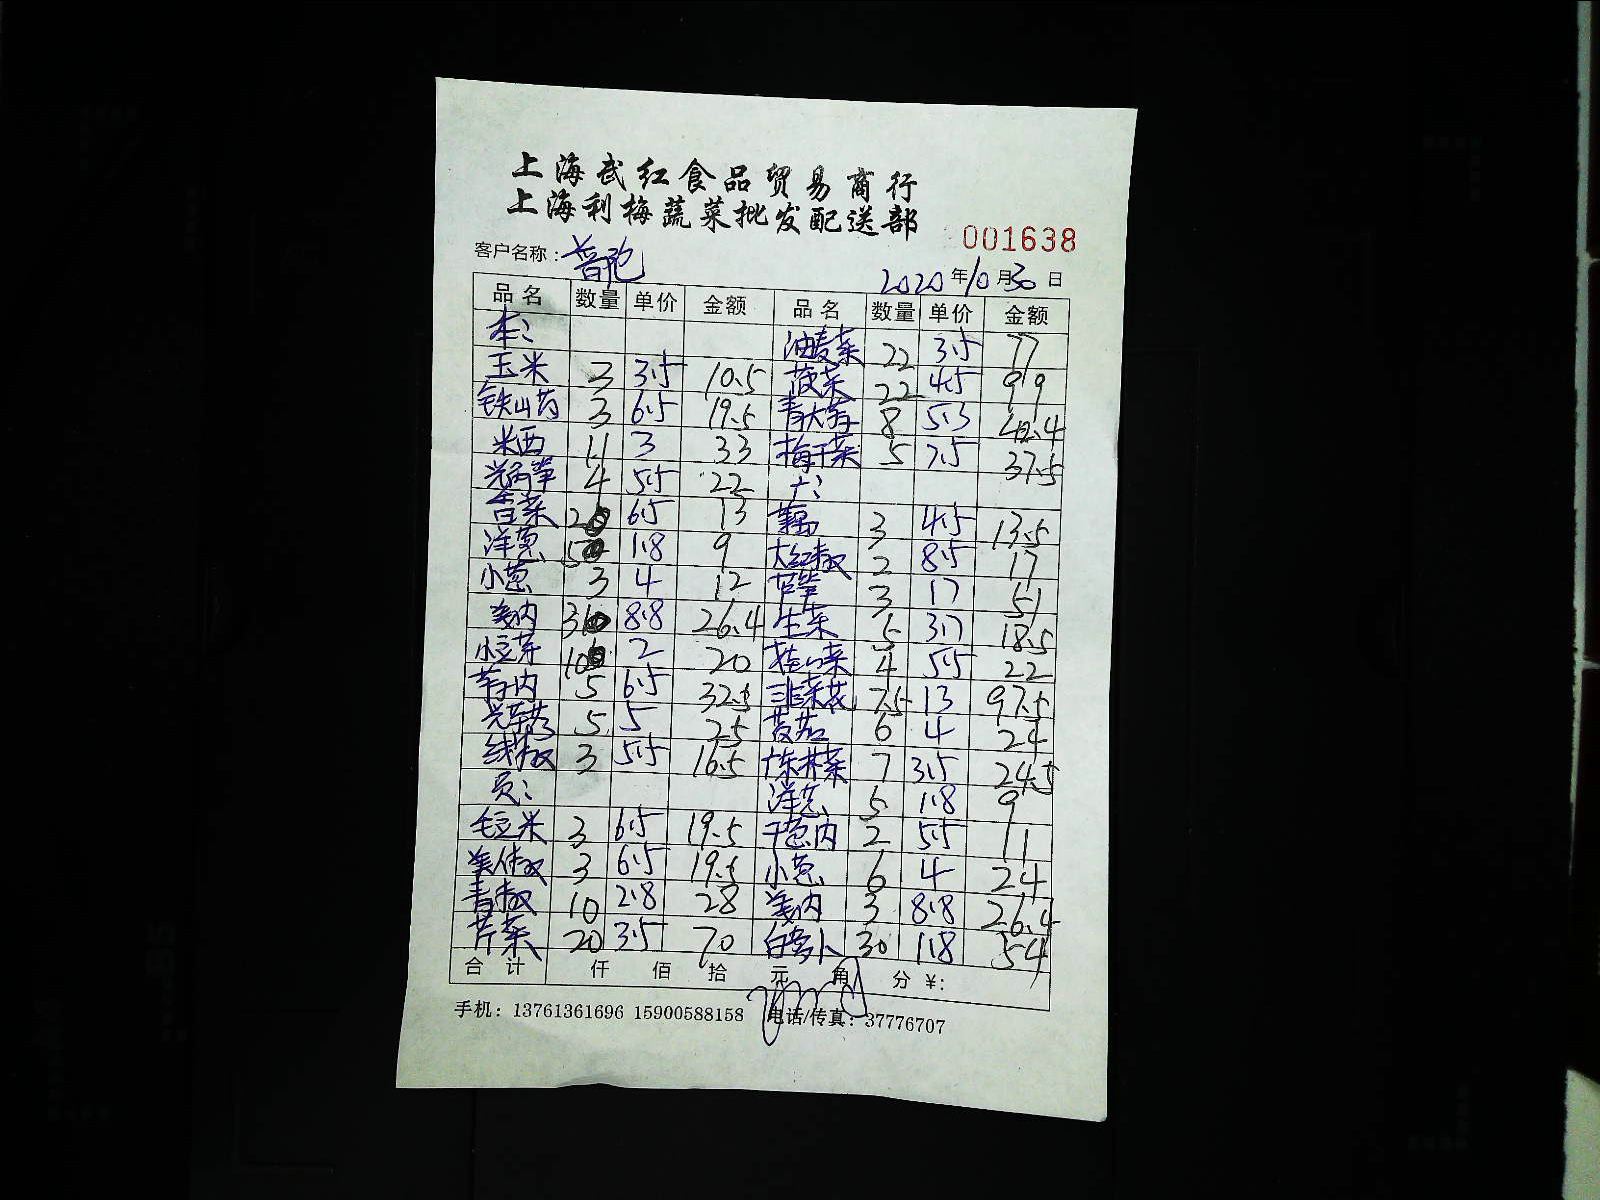 上海武红食品贸易商行
上海利梅蔬菜批发配送部
001638
客户名称： 2020年10月30日
品名 数量 单价 金额 品名 数量 单价 金额
本： 油麦菜 22 3.5 77
玉米 3 3.5 10.5 菠菜 22 4.5 99
铁山药 3 6.5 19.5 8 5.3 42.4
米西 11 3 33 梅干菜 5 7.5 37.5
4 5.5 22
香菜 2 6.5 13 藕 3 4.5 13.5
洋葱 5 1.8 9 大红椒 2 8.5 17
小葱 3 4 12 芦笋 3 17 51
姜肉 3 8.8 26.4 生菜 5 3.7 18.5
小豆芽 10 2 20 4 5.5 22
5 6.5 32.5 韭菜花 7.5 13 97.5
5 5 25 6 4 24
线椒 3 5.5 16.5 7 3.5 24.5
员： 洋葱 5 1.8 9
毛豆米 3 6.5 19.5 2 5.5 11
美人椒 3 6.5 19.5 小葱 6 4 24
青椒 10 2.8 28 姜肉 3 8.8 26.4
芹菜 20 3.5 70 白萝卜 30 1.8 54
合计 仟 佰 拾 元 角 分 ¥：
手机：13761361696 15900588158 电话/传真：37776707